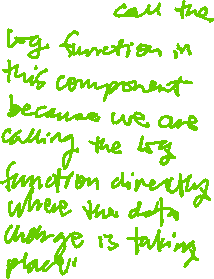 call the
log function in
this component
because we are
calling the log
function directly
where the data
change is taking
place"